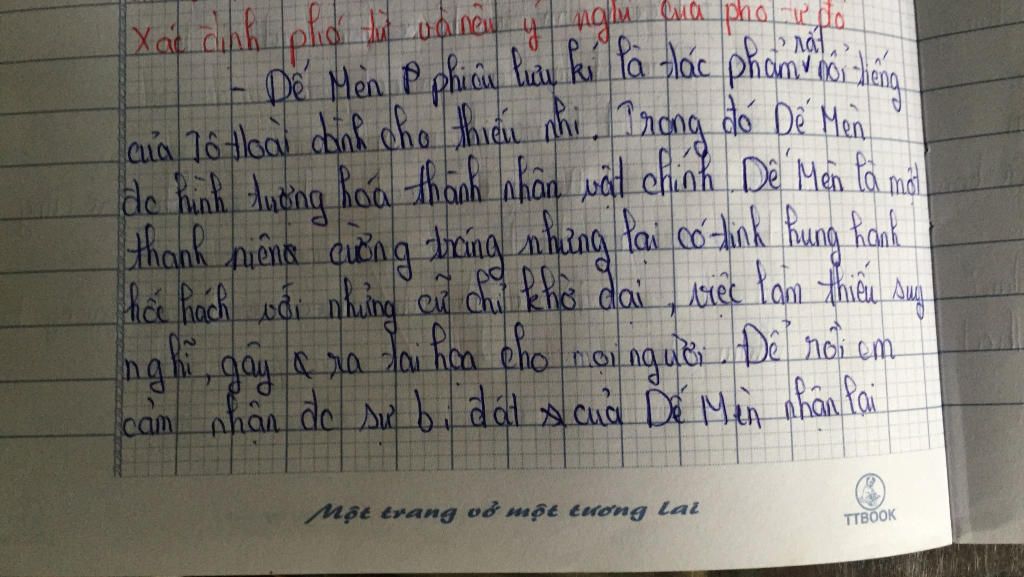 Xác định phó từ và nêu ý nghĩ của phó từ đó
- Dế Mèn phiêu lưu kí là tác phẩm rất nổi tiếng
của Tô Hoài dành cho thiếu nhi. Trong đó Dế Mèn
đc hình tượng hoá thành nhân vật chính. Dế Mèn là một
thanh niên cường tráng nhưng lại có tính hung hanh
hốc hách với những cử chỉ khờ dại, việc làm thiếu suy
nghĩ, gây ra tai họa cho mọi người. Để rồi em
cảm nhận đc sự bi đát của Dế Mèn nhận lại
Một trang vở một tương lai
TTBOOK